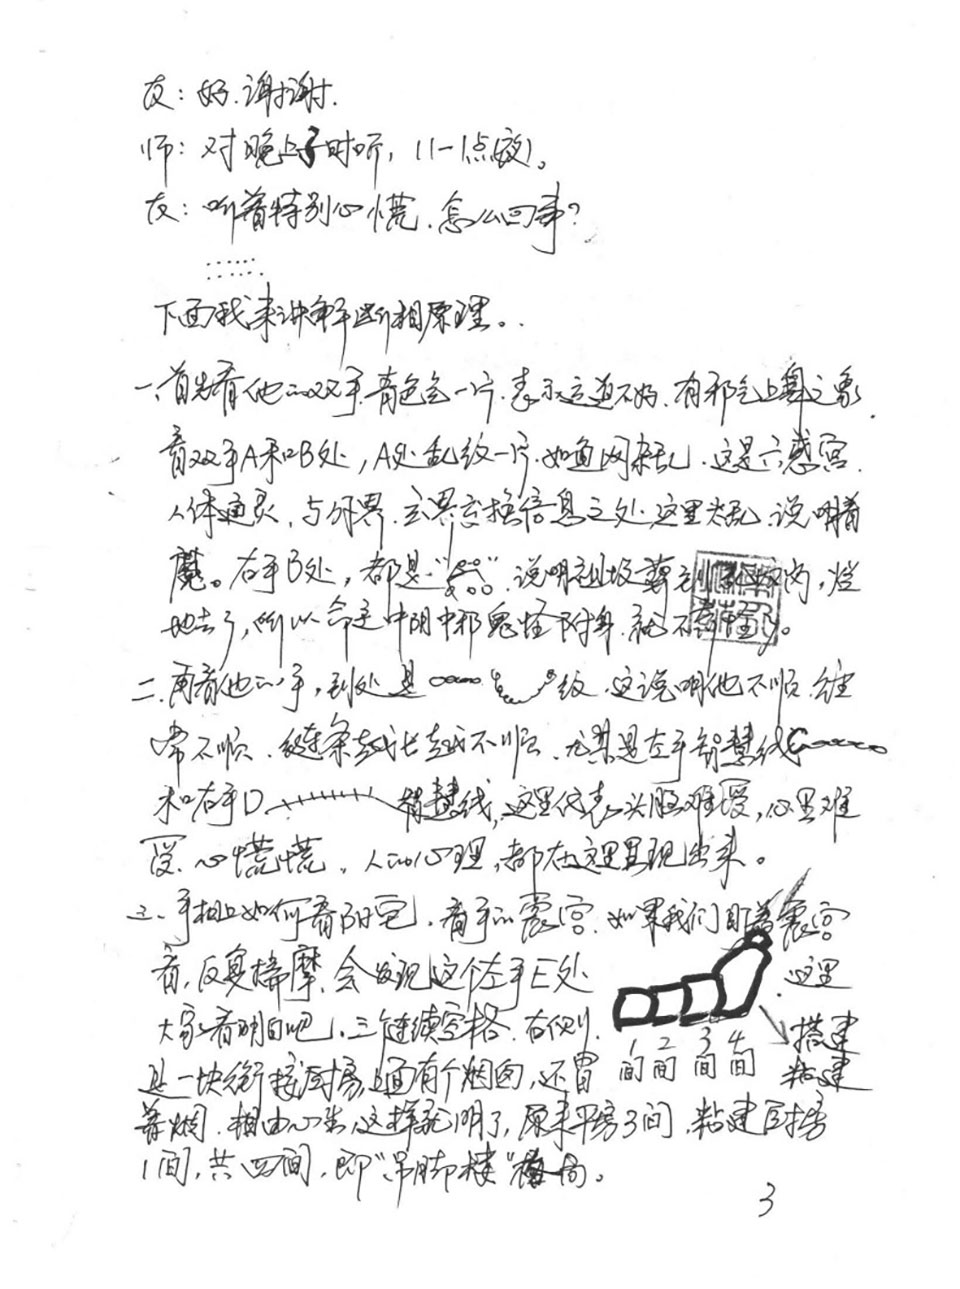 友：好.谢谢.
师：对晚上子时听，11一1点（夜）。
友：听着特别心慌.怎么回事？
下面我来讲解断相原理。
一、首先看他的双手青色气一片.表示运道不好.有邪气上身之象.
看双手A和B处，A处乱纹一片.如鱼网杂乱.这是六感宫.
人体通灵、与外界.玄界交换信息之处.这里杂乱、说明着
魔。右手B处，都是.说明祖坟 内，烂
地去了，所以命运中阴中邪鬼怪附身.就不奇怪了。
二.再看他的手，到处是 纹.这说明他不顺.往
常不顺.链条越长越不顺.尤其是左手智慧线
和右手D 智慧线，这里代表头脑难受，心里难
受.心慌慌.人的心理，都在这里显现出来。
三、手相上如何看阳宅.看手的震宫.如果我们盯着震宫
看，反复揣摩.会发现这个左手E处.这里
大家看明白吧.三个连续空格.右侧
是一块衔接厨房，上面有个烟囱，还冒
着烟.相由心生，这样就明了，原来平房3间.粘建厨房
1间，共四间，即“吊脚楼”格局。
1间 2间 3间 4间
搭建
粘建
3